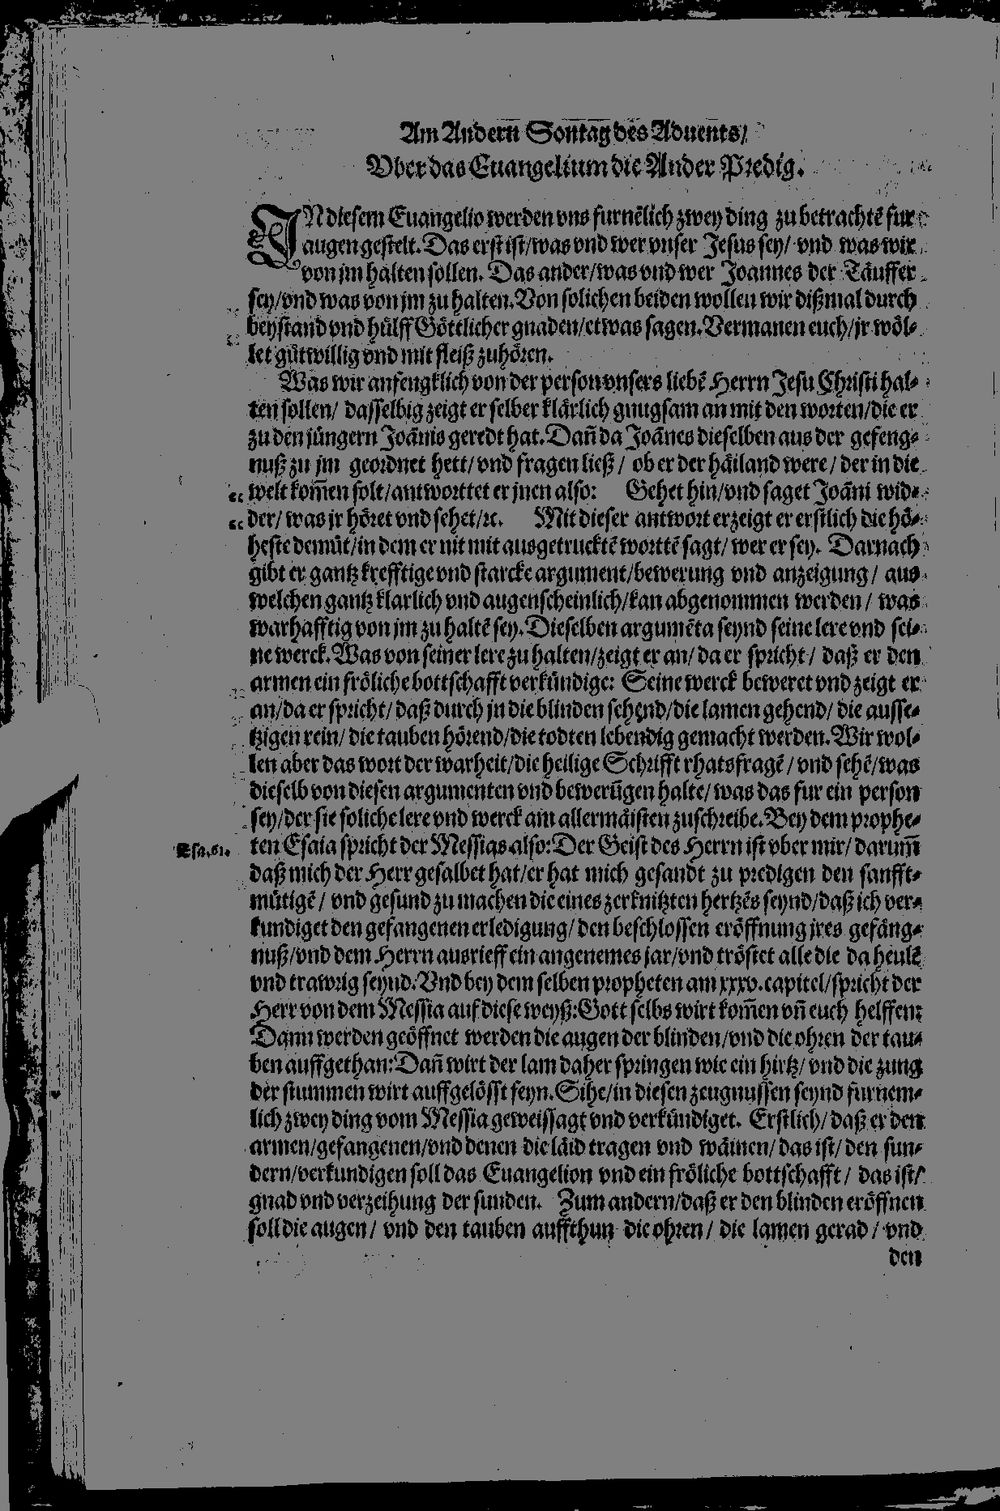 Am Andern Sontag des Aduents/
Vber das Euangelium die Ander Predig.
IN diesem Euangelio werden vns furnēlich zwey ding zu betrachtē fur
augen gestelt. Das erst ist/was vnd wer vnser Jesus sey/ vnd was wir
von jm halten sollen. Das ander/was vnd wer Joannes der Täuffer
sey/vnd was von jm zu halten. Von solichen beiden wollen wir dißmal durch
beystand vnd hülff Göttlicher gnaden/etwas sagen. Vermanen euch/jr wöl-
let gütwillig vnd mit fleiß zuhören.
Was wir anfengklich von der person vnsers liebē Herrn Jesu Christi hal-
ten sollen/ dasselbig zeigt er selber klärlich gnugsam an mit den worten/die er
zu den jüngern Joānis geredt hat. Dañ da Joānes dieselben aus der gefeng-
nuß zu jm geordnet hett/ vnd fragen ließ/ ob er der häiland were/ der in die
welt kom̄en solt/antworttet er jnen also: Gehet hin/vnd saget Joāni wid-
der/ was jr höret vnd sehet/ꝛc. Mit dieser antwort erzeigt er erstlich die hö-
heste demüt/in dem er nit mit ausgetrucktē worttē sagt/ wer er sey. Darnach
gibt er gantz krefftige vnd starcke argument/bewerung vnd anzeigung/ aus
welchen gantz klarlich vnd augenscheinlich/kan abgenommen werden/ was
warhafftig von jm zu haltē sey. Dieselben argumēta seynd seine lere vnd sei-
ne werck. Was von seiner lere zu halten/zeigt er an/ da er spricht/ daß er den
armen ein fröliche bottschafft verkündige: Seine werck beweret vnd zeigt er
an/da er spricht/ daß durch jn die blinden sehend/die lamen gehend/ die ausse-
tzigen rein/ die tauben hörend/die todten lebendig gemacht werden. Wir wol-
len aber das wort der warheit/die heilige Schrifft rhatsfragē/ vnd sehē/was
dieselb von diesen argumenten vnd bewerūgen halte/ was das fur ein person
sey/der sie soliche lere vnd werck am allermäisten zuschreibe. Bey dem prophe-
Esa.61. ten Esaia spricht der Messias also: Der Geist des Herrn ist vber mir/ darum̄
daß mich der Herr gesalbet hat/er hat mich gesandt zu predigen den sanfft-
mütigē/ vnd gesund zu machen die eines zerknitzten hertzēs seynd/daß ich ver-
kundiget den gefangenen erledigung/ den beschlossen eröffnung jres gefäng-
nuß/vnd dem Herrn ausrieff ein angenemes jar/vnd tröstet alle die da heulē
vnd trawrig seynd. Vnd bey dem selben propheten am xxxv. capitel/spricht der
Herr von dem Messia auf diese weyß: Gott selbs wirt kom̄en vñ euch helffen:
Dann werden geöffnet werden die augen der blinden/vnd die ohren der tau-
ben auffgethan: Dañ wirt der lam daher springen wie ein hirtz/ vnd die zung
der stummen wirt auffgelösst seyn. Sihe/in diesen zeugnussen seynd furnem-
lich zwey ding vom Messia geweissagt vnd verkündiget. Erstlich/ daß er den
armen/gefangenen/vnd denen die läid tragen vnd wäinen/ das ist/ den sun-
dern/verkundigen soll das Euangelion vnd ein fröliche bottschafft/ das ist/
gnad vnd verzeihung der sunden. Zum andern/daß er den blinden eröffnen
soll die augen/ vnd den tauben auffthun die ohren/ die lamen gerad/ vnd
den